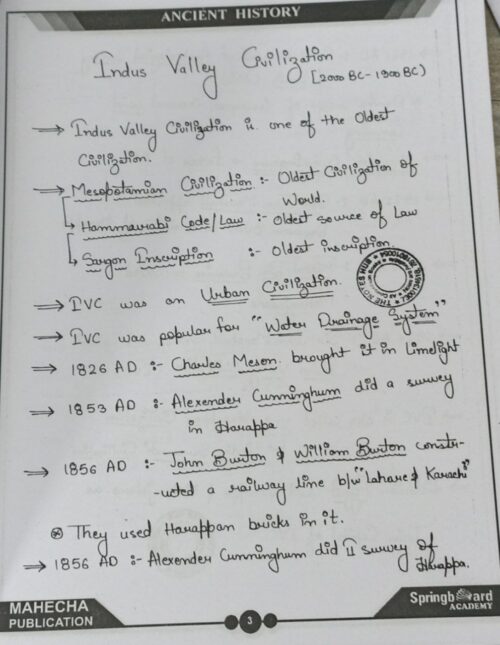 ANCIENT HISTORY
Indus Valley Civilization
[2000 BC - 1900 BC)
⟹ Indus Valley Civilization is one of the Oldest
Civilization.
⟹ Mesopotamian Civilization :- Oldest Civilization of
World.
↳ Hammurabi Code/Law :- Oldest source of Law
↳ Sargon Inscription :- Oldest inscription.
⟹ IVC was an Urban Civilization.
⟹ IVC was popular for "Water Drainage System"
⟹ 1826 AD :- Charles Mesen. brought it in Limelight
⟹ 1853 AD :- Alexender Cunninghum did a survey
in Harappa
⟹ 1856 AD :- John Burton & William Burton constr-
-ucted a railway line b/w "Lahore & Karachi"
⊛ They used Harappan bricks in it.
⟹ 1856 AD :- Alexender Cunninghum did II survey of
Harappa.
THE NOTES HUB
MAHECHA
PUBLICATION
3
Springboard
ACADEMY